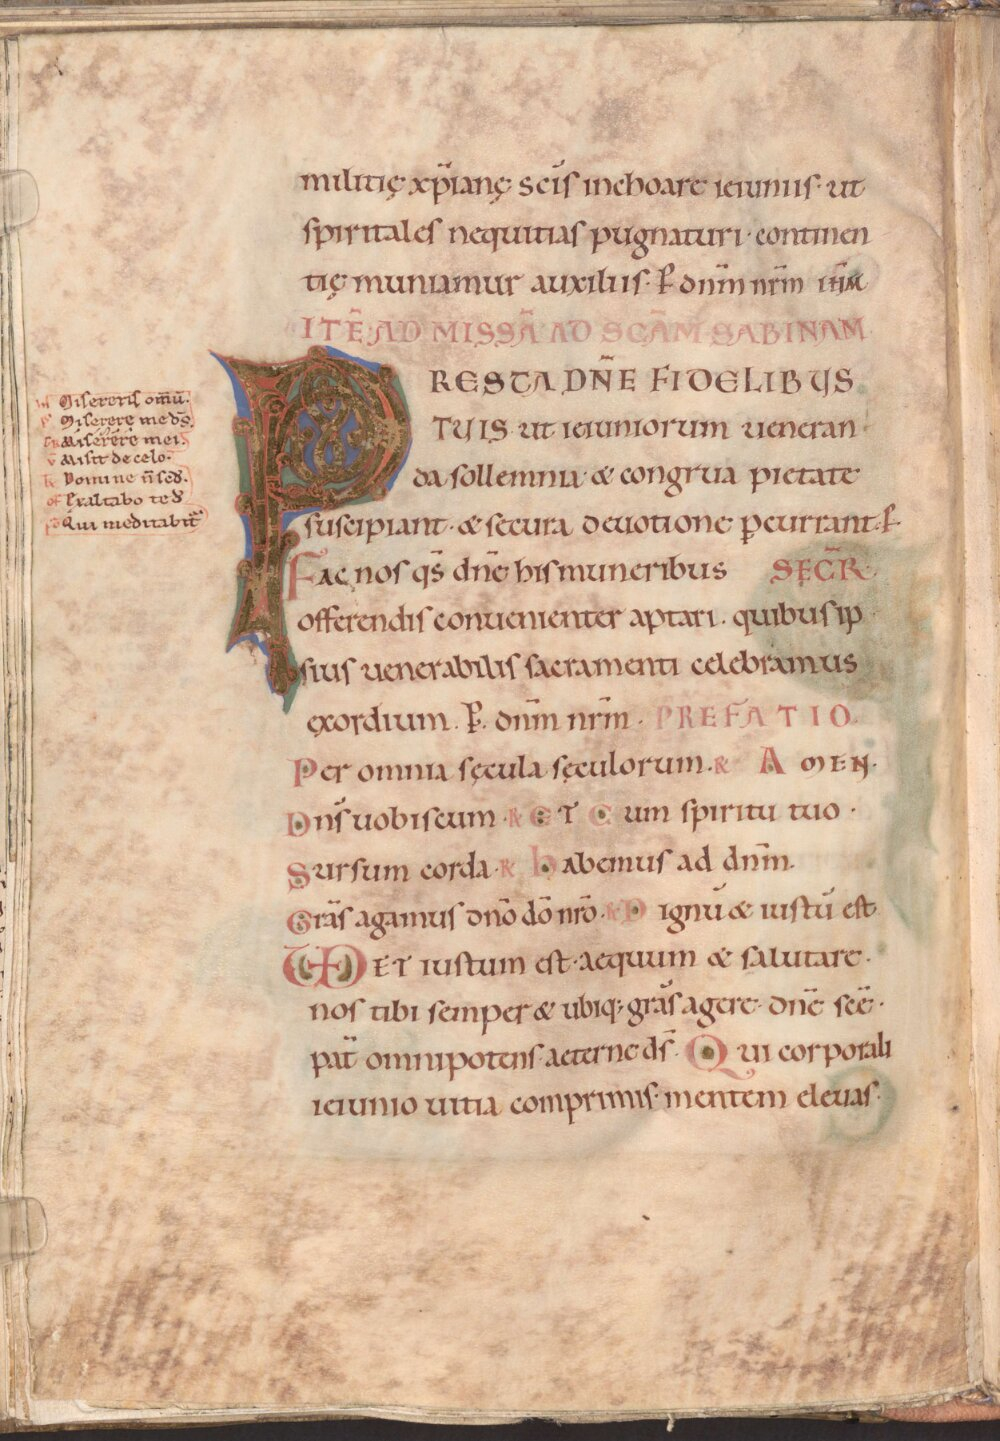 militię xp̄ianę scīs inchoare ieiuniis· ut
spiritales nequitias pugnaturi· continen
tię muniamur auxiliis· P̱ dn̄m nr̄m
ITĒ AD MISSĀ AD SCĀM SABINAM
PRESTA DN̄E FIDELIBUS
TUIS· ut ieiuniorum ueneran
da sollemnia· & congrua pietate
suscipiant· & secura deuotione ꝑcurrant· P̱
Fac nos qs̄ dn̄e his muneribus SECR̄
offerendis conuenienter aptari· quibus ip
sius uenerabilis sacramenti celebramus
exordium. P̱. dn̄m nr̄m. PREFATIO
Per omnia sęcula sęculorum. R AMEN.
Dn̄s uobiscum· R ET Cum spiritu tuo·
Sursum corda· R Habemus ad dn̄m.
Grās agamus dn̄o dō nr̄o· R Dignū & iustū est
VD ET iustum est· aequum & salutare.
nos tibi semper & ubiq; grās agere· dn̄e scē·
pat̄ omnipotens aeterne ds̄. Qui corporali
ieiunio uitia comprimis· mentem eleuas·
Misereris omīū·
Miserere me ds̄
Miserere mei·
Misit de celo·
R Domine n̄ sed̄·
of Exaltabo te d̄
Qui meditabit̄